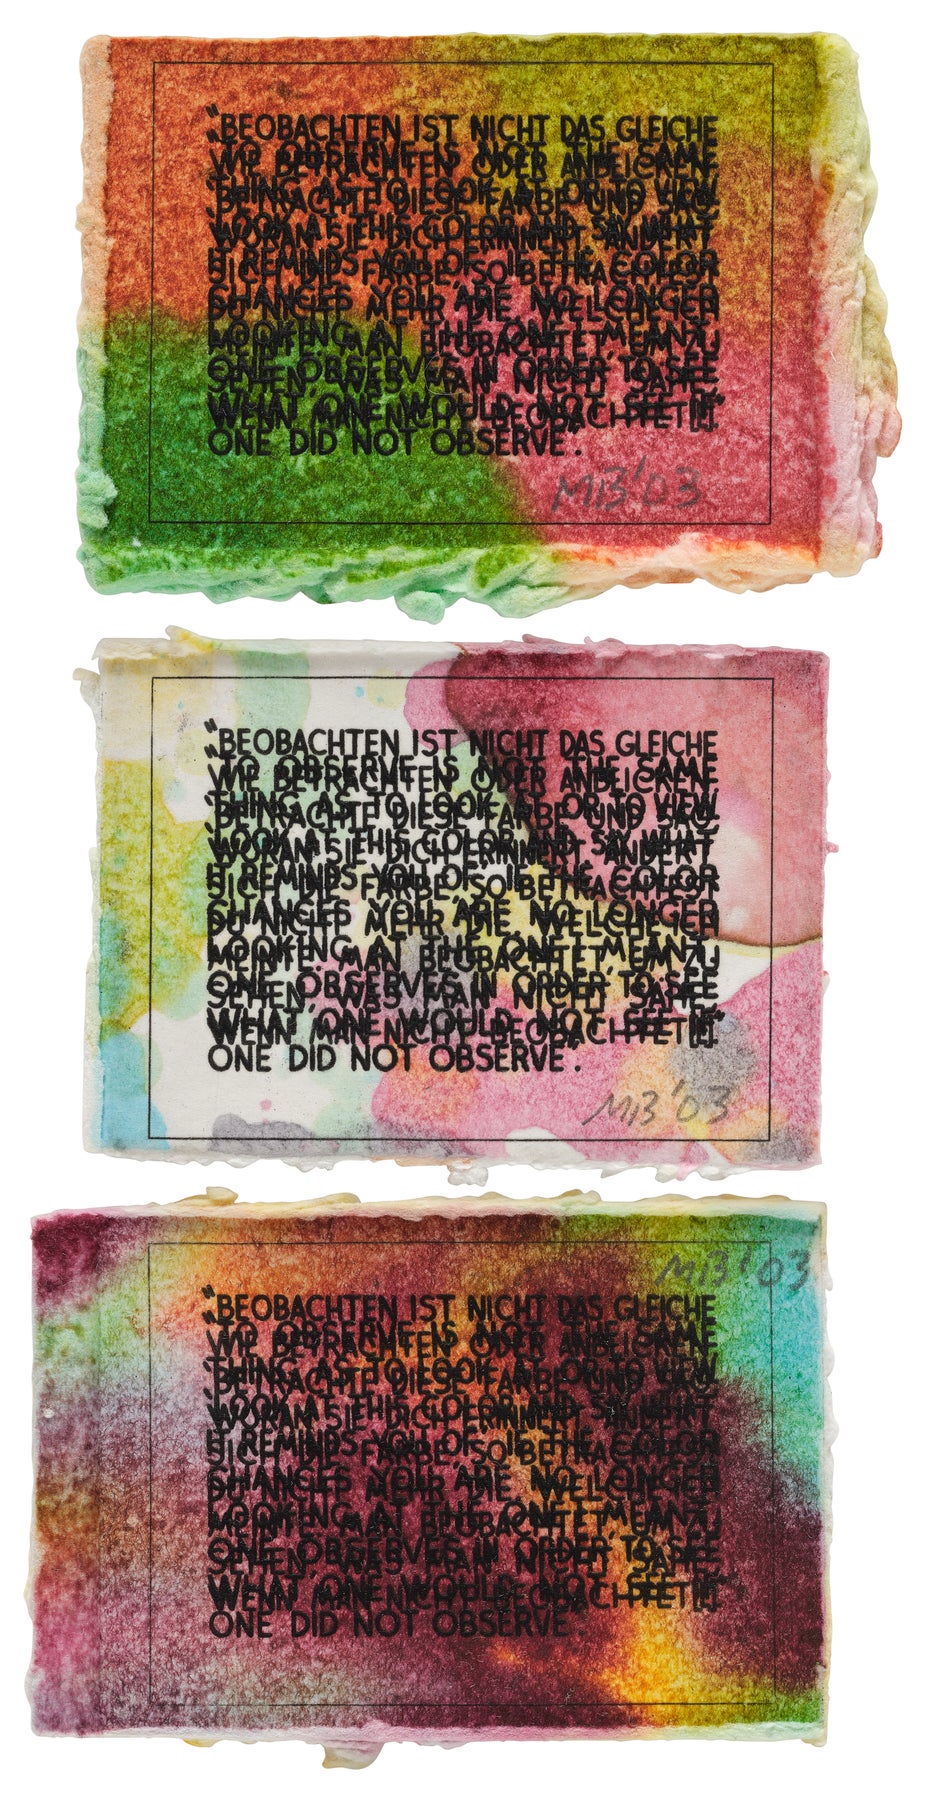 "BEOBACHTEN IST NICHT DAS GLEICHE
"TO OBSERVE IS NOT THE SAME
WIE BETRACHTEN ODER ANBLICKEN.
THING AS TO LOOK AT OR TO VIEW
'BETRACHTE DIESE FARBE UND SAG,
'LOOK AT THIS COLOR AND SAY WHAT
WORAN SIE DICH ERINNERT' ÄNDERT
IT REMINDS YOU OF.' IF THE COLOR
SICH DIE FARBE, SO BETRACHTEST
CHANGES YOU ARE NO LONGER
DU MEHR DIE, WELCHE
LOOKING AT THE ONE I MEANT
MEINTE. MAN BEOBACHTET, UM ZU
ONE OBSERVES IN ORDER TO SEE
SEHEN, WAS MAN NICHT SÄHE,
WHAT ONE WOULD NOT SEE IF
WENN MAN NICHT BEOBACHTET[E]."
ONE DID NOT OBSERVE".
MB'03
"BEOBACHTEN IST NICHT DAS GLEICHE
"TO OBSERVE IS NOT THE SAME
WIE BETRACHTEN ODER ANBLICKEN.
THING AS TO LOOK AT OR TO VIEW
'BETRACHTE DIESE FARBE UND SAG,
'LOOK AT THIS COLOR AND SAY WHAT
WORAN SIE DICH ERINNERT' ÄNDERT
IT REMINDS YOU OF.' IF THE COLOR
SICH DIE FARBE, SO BETRACHTEST
CHANGES YOU ARE NO LONGER
DU MEHR DIE, WELCHE
LOOKING AT THE ONE I MEANT
MEINTE. MAN BEOBACHTET, UM ZU
ONE OBSERVES IN ORDER TO SEE
SEHEN, WAS MAN NICHT SÄHE,
WHAT ONE WOULD NOT SEE IF
WENN MAN NICHT BEOBACHTET[E]."
ONE DID NOT OBSERVE".
MB'03
MB'03
"BEOBACHTEN IST NICHT DAS GLEICHE
"TO OBSERVE IS NOT THE SAME
WIE BETRACHTEN ODER ANBLICKEN.
THING AS TO LOOK AT OR TO VIEW
'BETRACHTE DIESE FARBE UND SAG,
'LOOK AT THIS COLOR AND SAY WHAT
WORAN SIE DICH ERINNERT' ÄNDERT
IT REMINDS YOU OF.' IF THE COLOR
SICH DIE FARBE, SO BETRACHTEST
CHANGES YOU ARE NO LONGER
DU MEHR DIE, WELCHE
LOOKING AT THE ONE I MEANT
MEINTE. MAN BEOBACHTET, UM ZU
ONE OBSERVES IN ORDER TO SEE
SEHEN, WAS MAN NICHT SÄHE,
WHAT ONE WOULD NOT SEE IF
WENN MAN NICHT BEOBACHTET[E]."
ONE DID NOT OBSERVE".